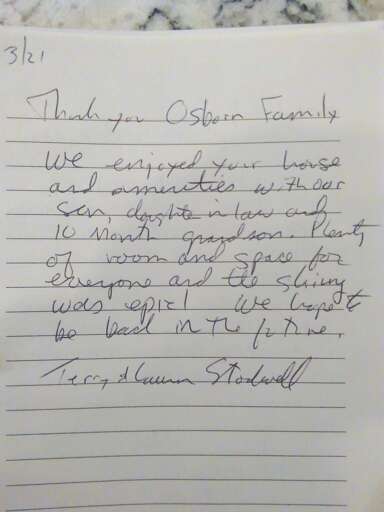 3/21
Thank you Osborn Family
We enjoyed your house
and amenities with our
son, daughter in law and
10 month grandson. Plenty
of room and space for
everyone and the skiing
was epic! We hope to
be back in the future.
Terry &